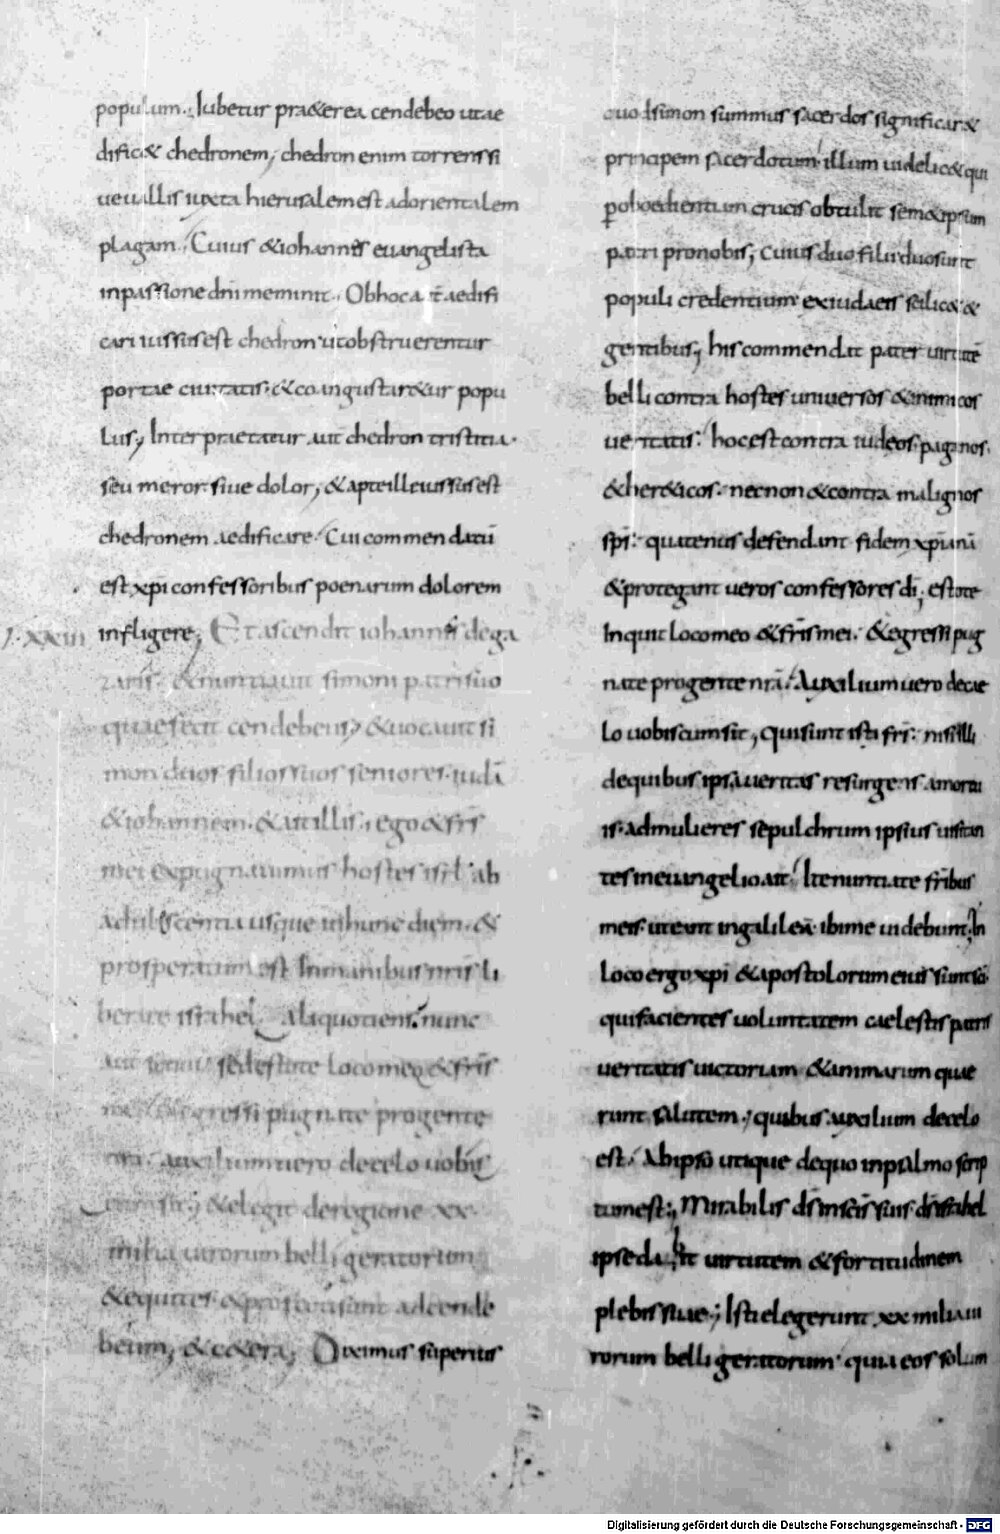 populum; Iubetur pra&erea cendebeo utae
dific& chedronem; chedron enim torrens si
ue uallis iuxta hierusalem est ad orientalem
plagam; Cuius & iohannes euangelista
in passione dñi meminit; Ob hoc aedifi
cari iussus est chedron ut obstruerentur
portae ciuitatis. & coangustar&ur popu
lus; Interpraetatur aut chedron tristitia.
seu meror siue dolor; & apte ille iussus est
chedronem aedificare. Cui commendatū
est xp̄i confessoribus poenarum dolorem
J. XXIII infligere; Et ascendit iohannes de ga
zaris. & nuntiauit simoni patri suo
quae fecit cendebeus; & uocauit si
mon duos filios suos seniores. iudā
& iohannem. & ait illis; ego & frs̄
mei expugnauimus hostes isrl̄ ab
adulescentia usque in hunc diem. &
prosperatum est in manibus nrīs li
berare israhel aliquotiens. nunc
sed estote loco meo & frs̄
mei & egressi pugnate pro gente
nrā. auxilium uero de celo uobis
cum sit; & elegit de regione xx
milia uirorum belligeratorum
& equites. & profecti sunt ad cende
beum; & c&era; Diximus superius
quod simon summus sacerdos significar&
principem sacerdotum. illum uidelic& qui
p̱ oboedientiam crucis obtulit sem&ipsum
patri pro nobis; Cuius duo filii duo sunt
populi credentium. ex iudaeis scilic& &
gentibus; his commendat pater uirtutē
belli contra hostes uniuersos & inimicos
ueritatis. hoc est contra iudeos. paganos.
& her&icos. necnon & contra malignos
sps̄. quatenus defendant fidem xp̄ianā
& protegant ueros confessores dī; estote
inquit loco meo & frs̄ mei. & egressi pug
nate pro gente nrā. Auxilium uero de cae
lo uobiscum sit; qui sunt isti frs̄. nisi illi
de quibus ipsa ueritas resurgens a mortu
is. ad mulieres sepulchrum ipsius uisitan
tes in euangelio ait. Ite nuntiate fribus
meis. ut eant in galileā. ibi me uidebunt; In
loco ergo xp̄i & apostolorum eius sunt
qui facientes uoluntatem caelestis patris
ueritatis uictoriam & animarum quae
runt salutem; quibus auxilium de celo
est. Ab ipso utique de quo in psalmo scrip
tum est; Mirabilis dš in scīs suis dš israhel
ipse dabit uirtutem & fortitudinem
plebis suae; Isti elegerunt xx milia ui
rorum belligeratorum. quia eos solum